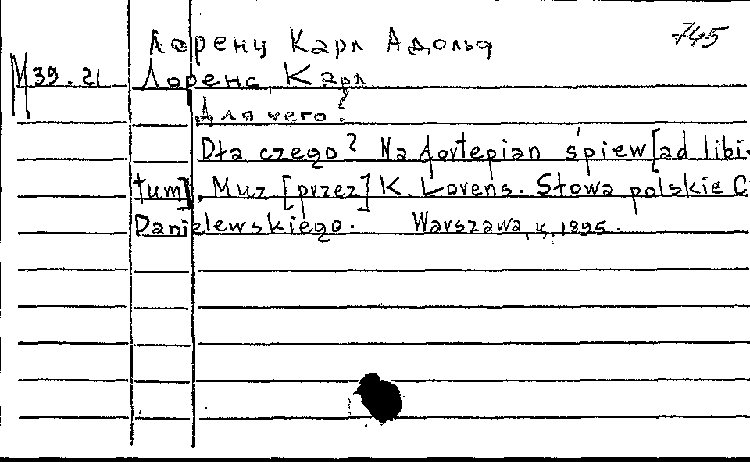 Лоренц Карл Адольф 745
М 39.21 Лоренс, Карл
Для чего?
Dła czego? Na fortepian śpiew [ad libi-
tum]. Muz [przez] K. Lorens. Słowa polskie C
Danielewskiego. Warszawa, 1895.